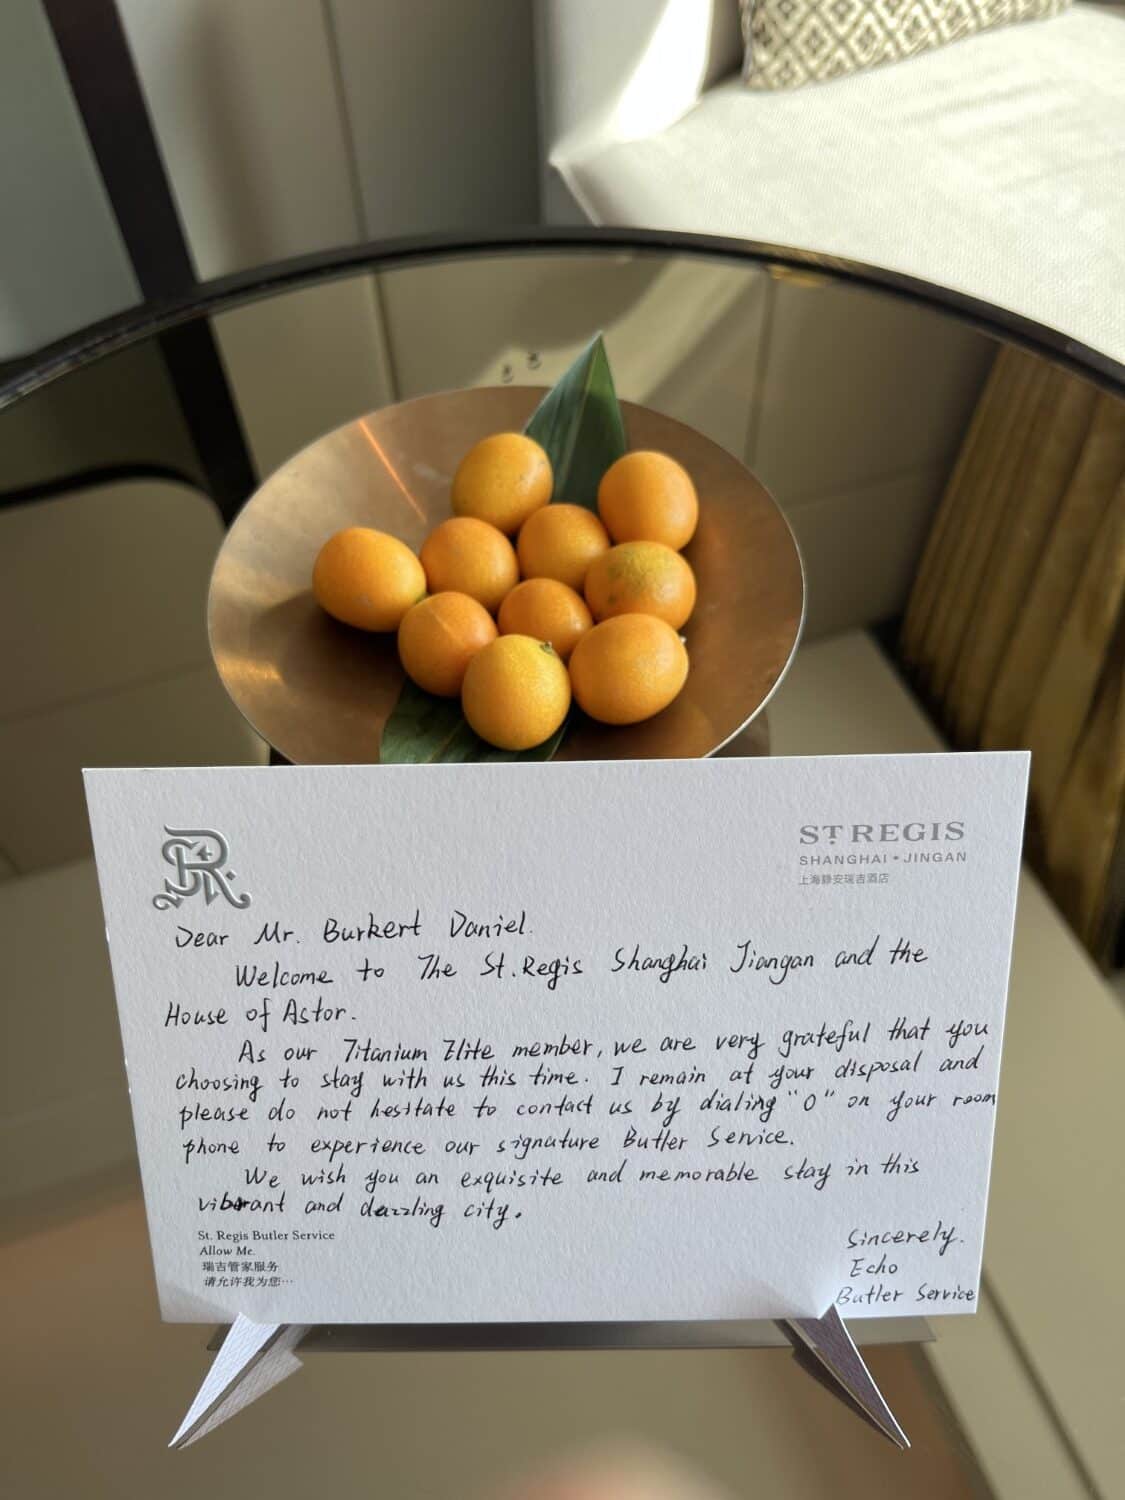 ST REGIS
SHANGHAI • JINGAN
上海静安瑞吉酒店
Dear Mr. Burkert Daniel.
Welcome to The St. Regis Shanghai Jiangan and the
House of Astor.
As our Titanium Elite member, we are very grateful that you
choosing to stay with us this time. I remain at your disposal and
please do not hesitate to contact us by dialing "0" on your room
phone to experience our signature Butler Service.
We wish you an exquisite and memorable stay in this
vibrant and dazzling city.
St. Regis Butler Service
Allow Me.
瑞吉管家服务
请允许我为您…
Sincerely.
Echo
Butler Service